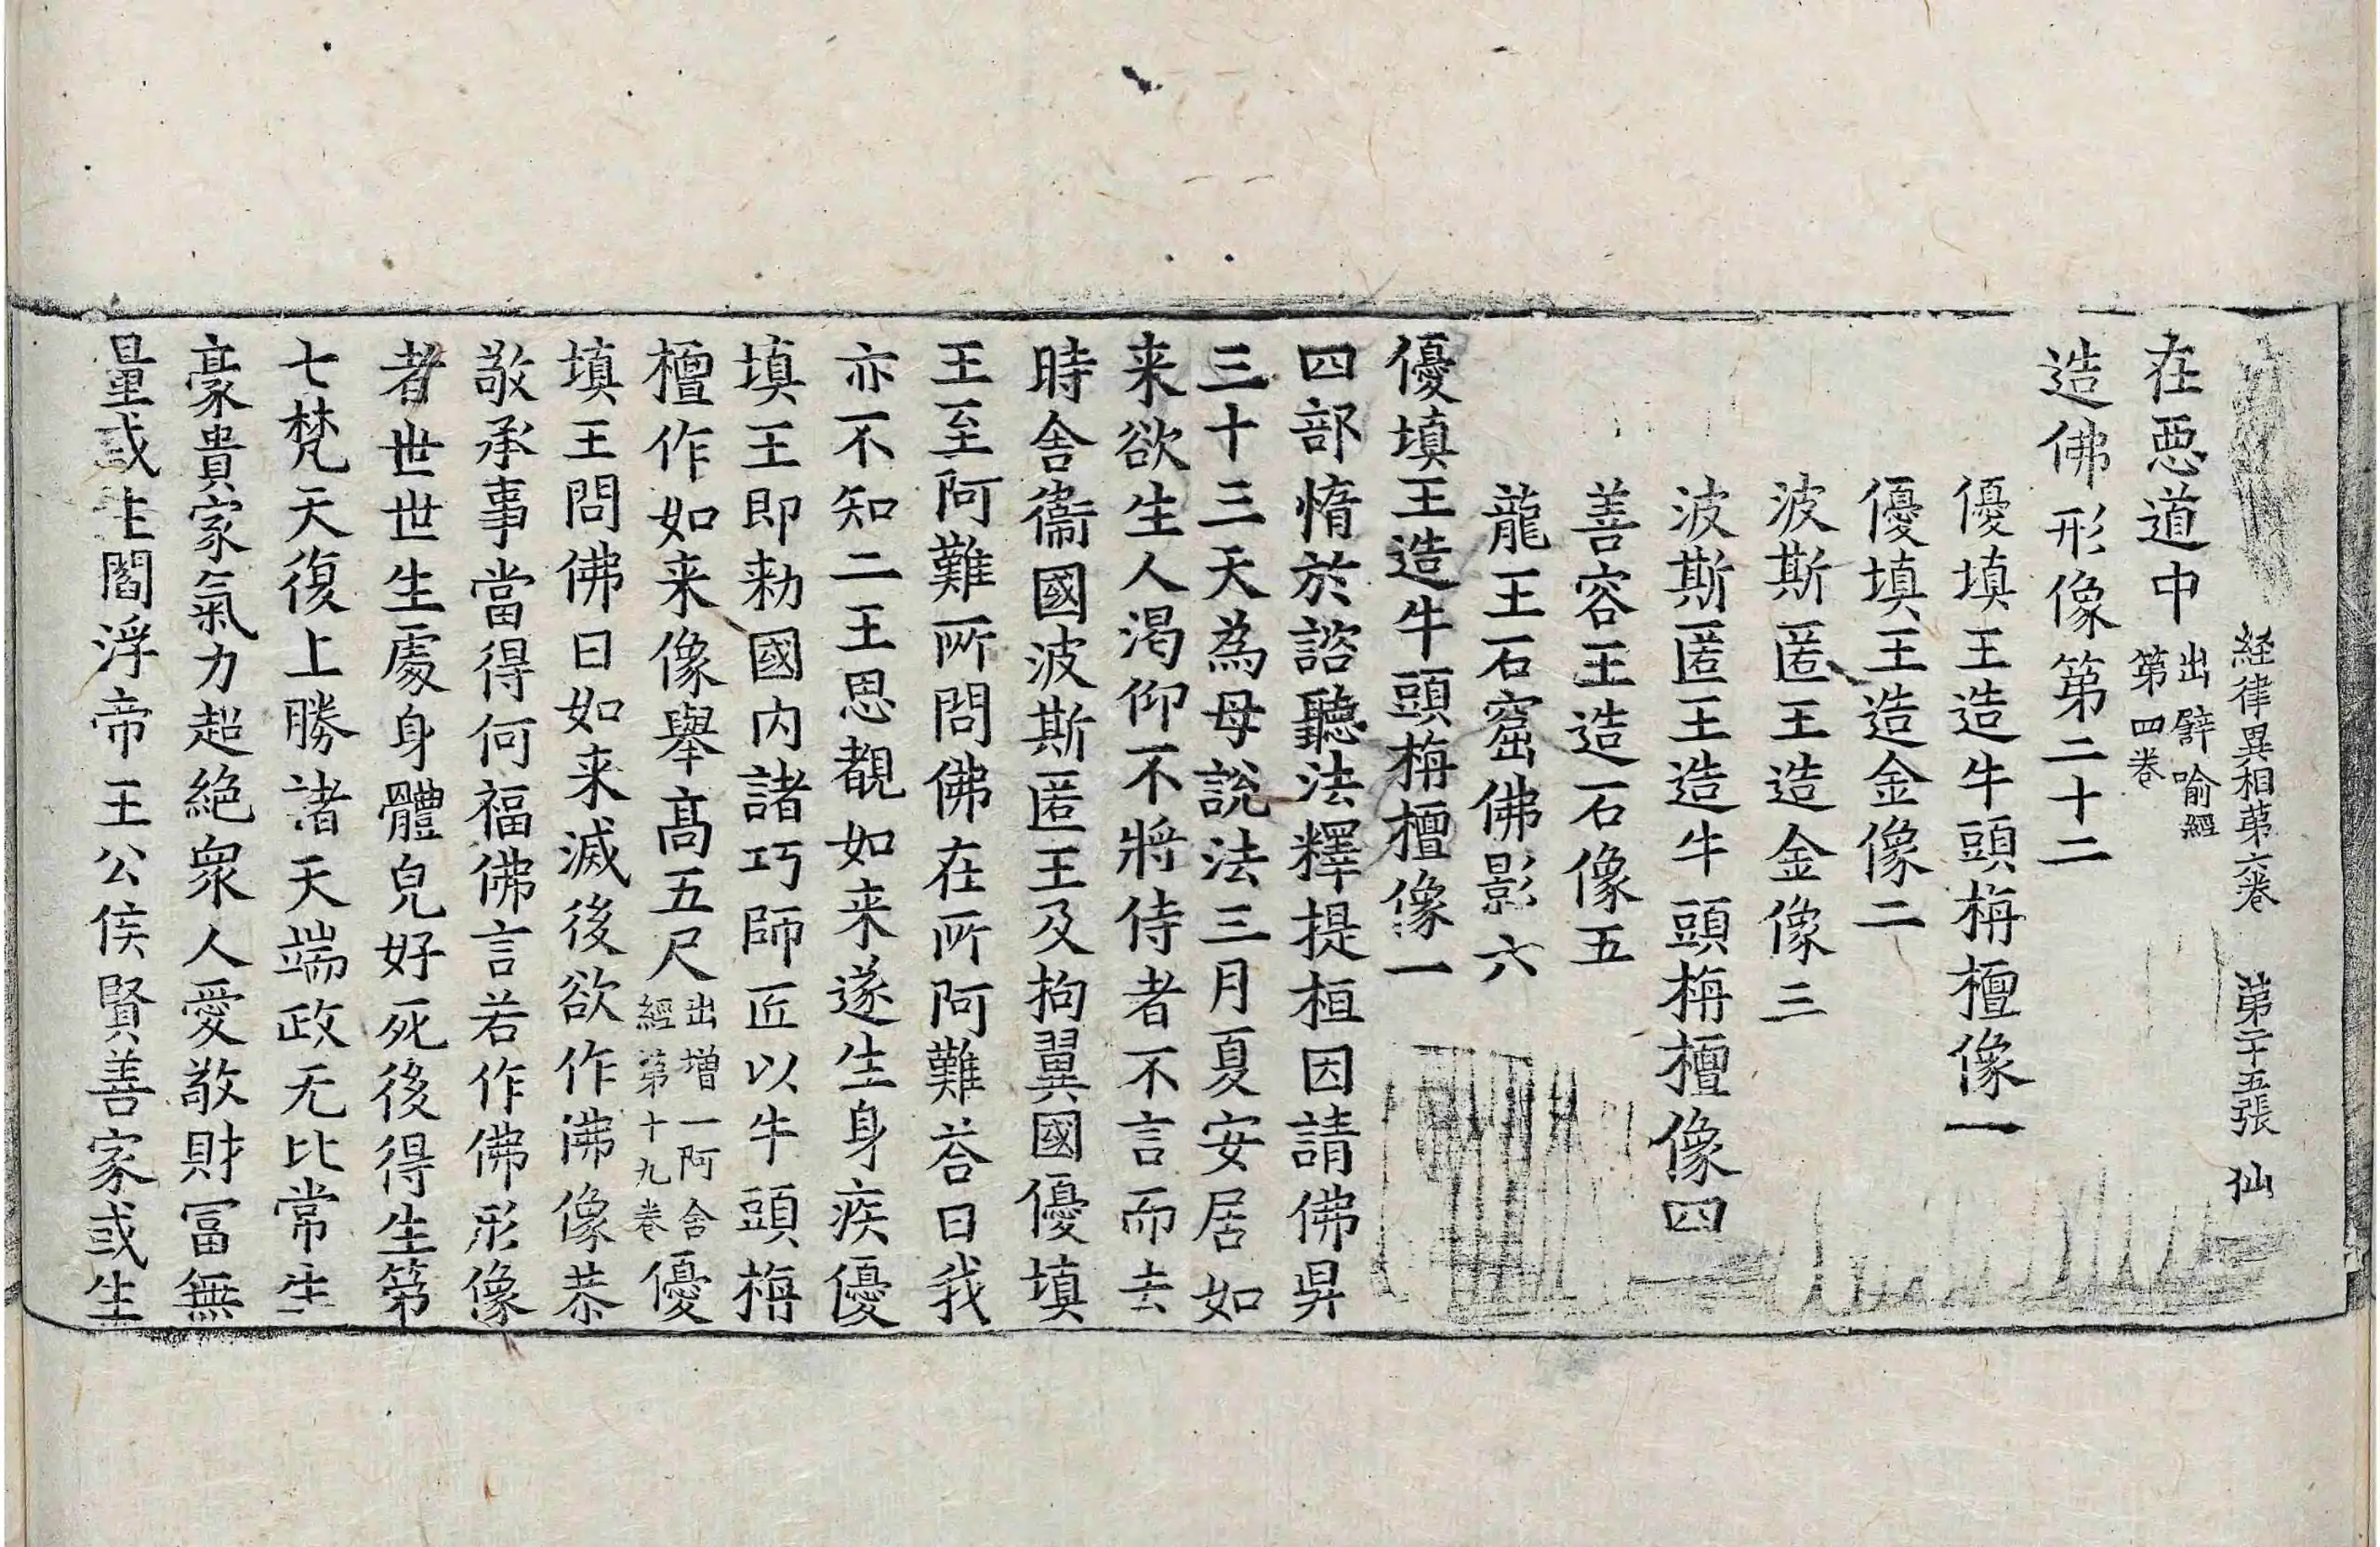 経律異相苐六卷 苐二十五張 仙
在惡道中出譬喻經第四卷
造佛形像第二十二
優填王造牛頭栴檀像一
優填王造金像二
波斯匿王造金像三
波斯匿王造牛頭栴檀像四
善容王造石像五
龍王石窟佛影六
優填王造牛頭栴檀像一
四部惰於諮聽法釋提桓因請佛昇
三十三天為母說法三月夏安居如
来欲生人渴仰不將侍者不言而去
時舍衞國波斯匿王及拘翼國優填
王至阿難所問佛在所阿難荅曰我
亦不知二王思覩如来遂生身疾優
填王即勑國内諸巧師匠以牛頭栴
檀作如来像舉髙五尺出增一阿舍經第十九卷優
填王問佛曰如来滅後欲作佛像恭
敬承事當得何福佛言若作佛形像
者世世生處身體皃好死後得生第
七梵天復上勝諸天端政无比常生
豪貴家氣力超絶衆人愛敬財冨無
量或生閻浮帝王公侯賢善家或生